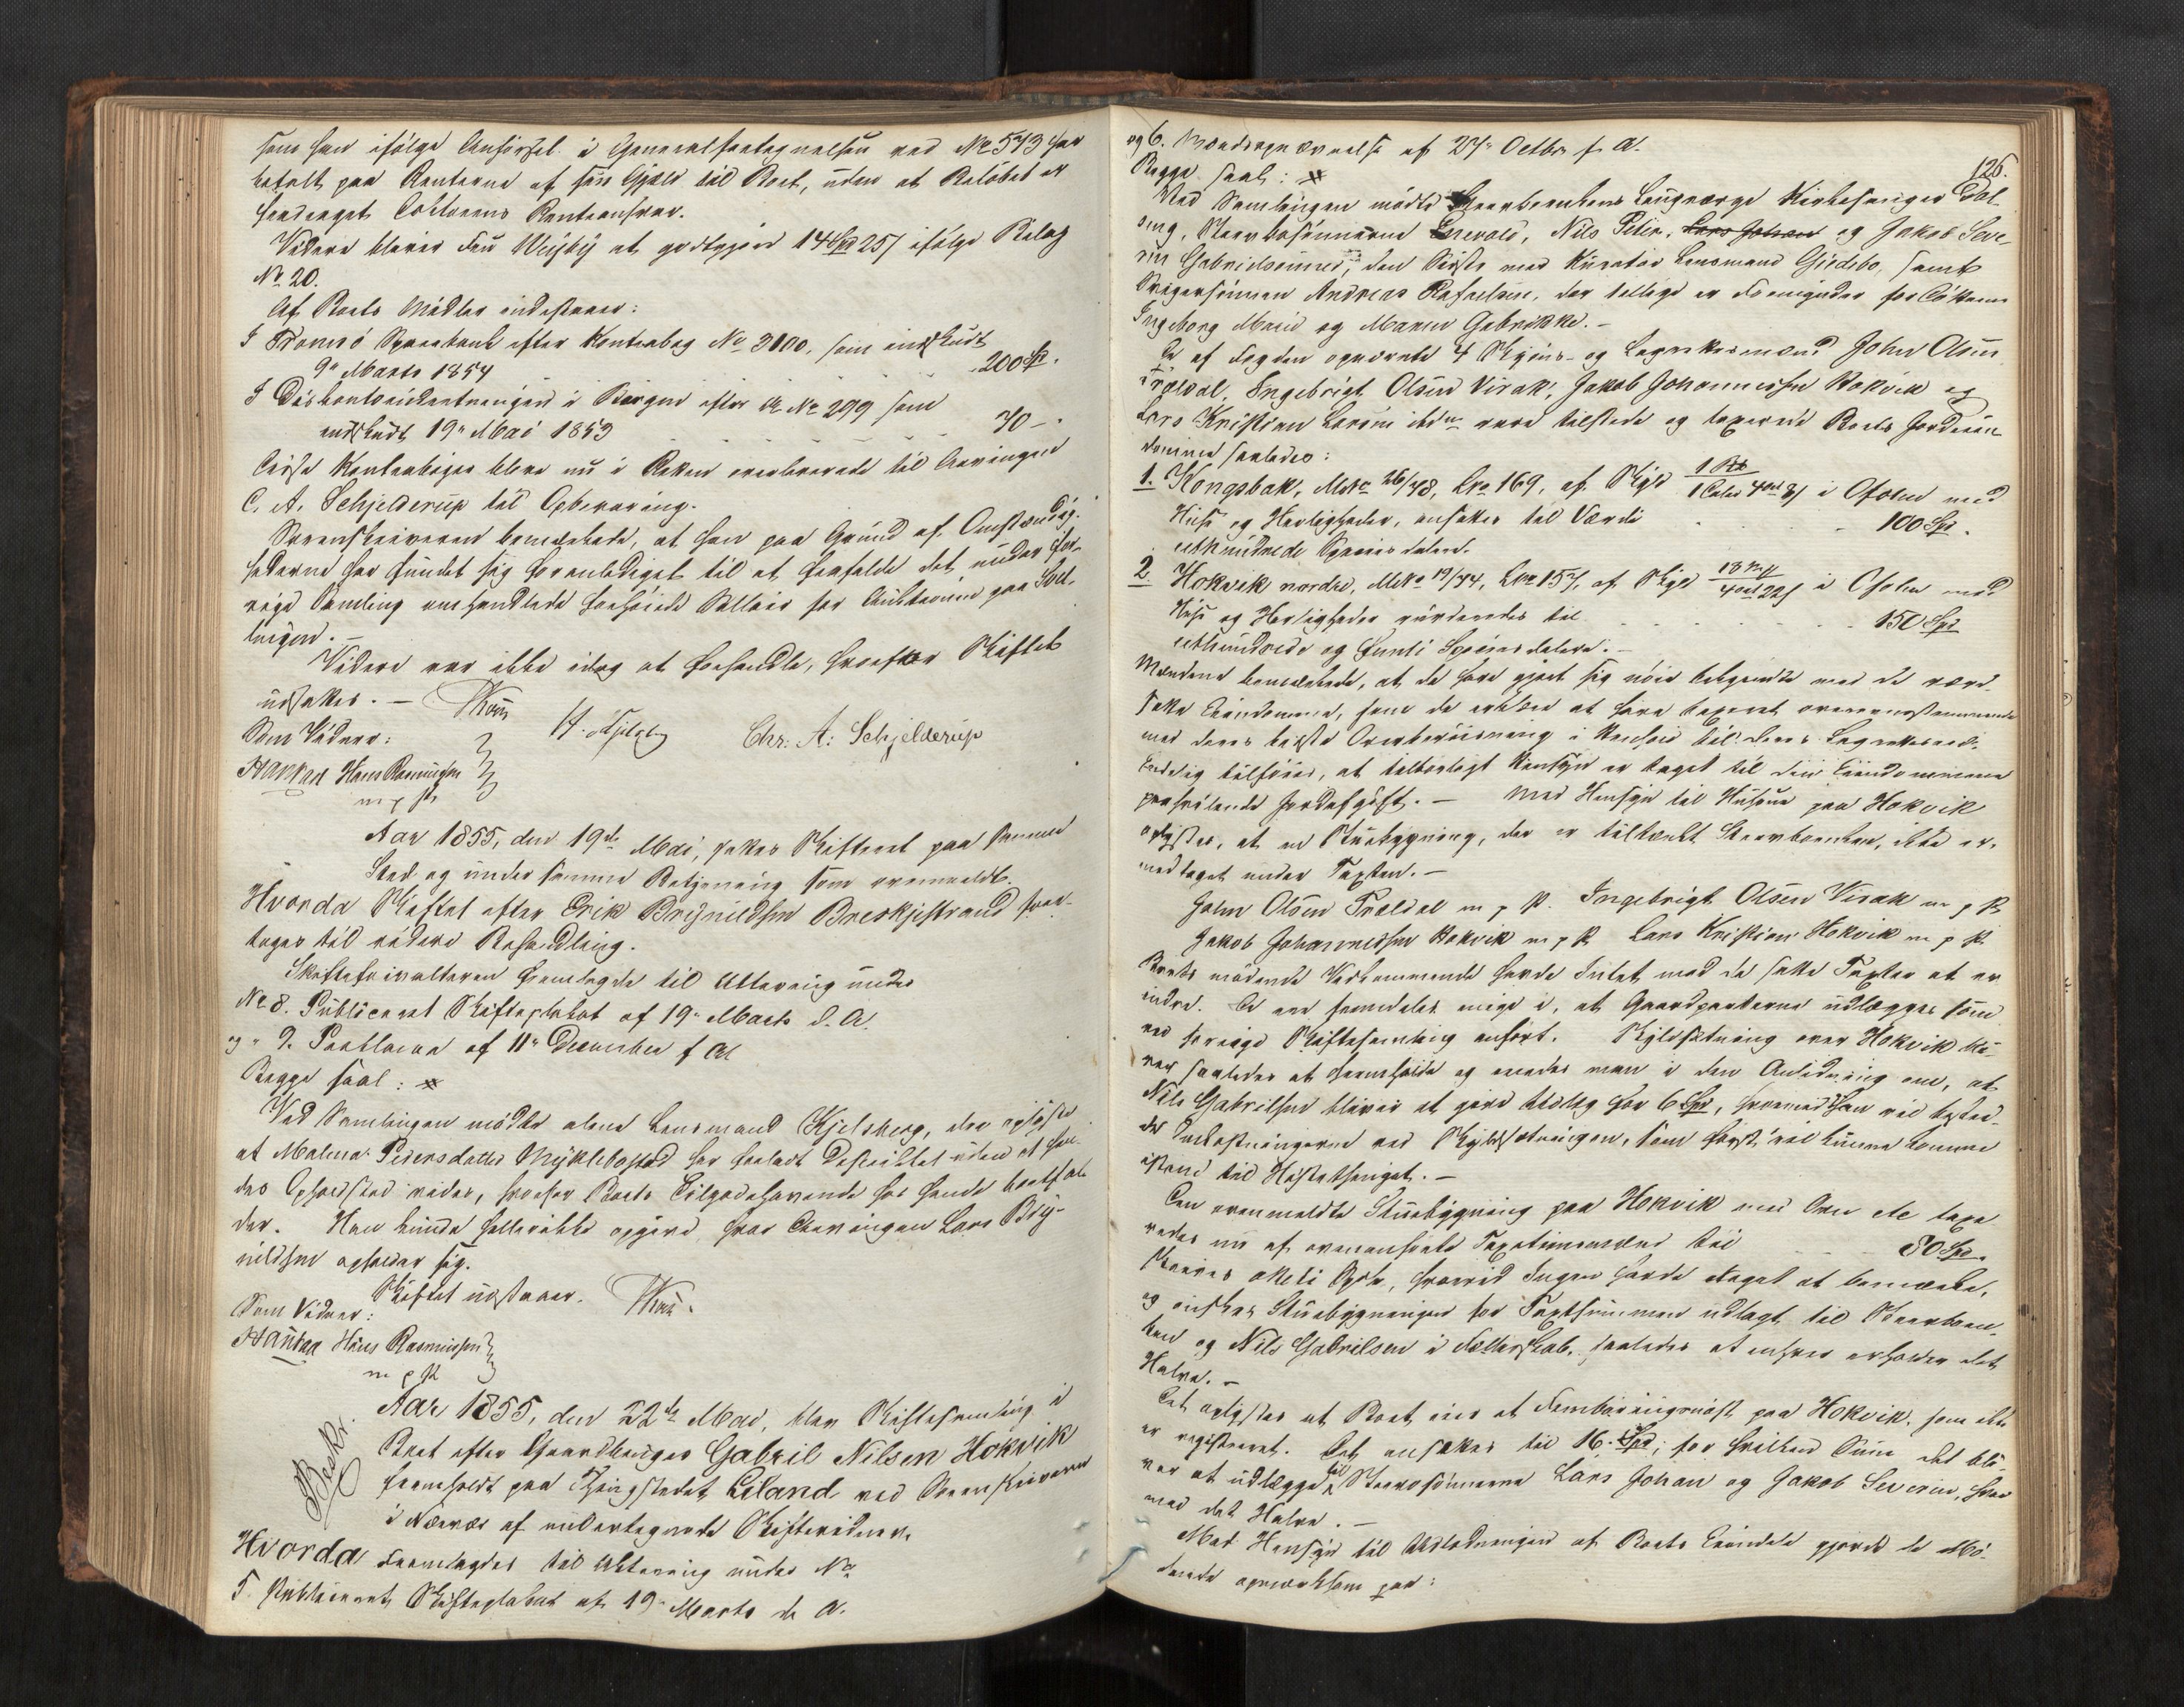 som han ifølge Anførsel i Generalfortegnelsen ved No 573 har
betalt paa Renterne af sin Gjæld til Boet, uden at Beløbet er
fradraget Debitorens Renteansvar.
Videre bliver Fru Weyby at godtgjøre 14 Spd 25 s ifølge Bilag
No. 20.
Af Boets Midler indestaaer:
I Tromsö Sparebank efter Kontrabog No 3100, som indskudt
9de Marts 1854 200 Sp.
I Diskontoindretningen i Bergen efter No 299 som
indskudt 19de Mai 1853 70 -"
Disse Kontrabøger bleve nu i Retten overleverede til Arvingen
C. A. Schjelderup til Opbevaring.
Sorenskriveren bemærkede, at han paa Grund af Omstændig-
hederne har fundet sig foranlediget til at frafalde det under for-
rige Samling omhandlede forhøiede Salair for Auktionen paa
Videre var ikke idag at forhandle, hvorfor Skiftet
udsattes. —
Som Vidner: H. Kjelsberg Chr: A: Schjelderup
Hans Rasmussen
m p P
Aar 1855, den 19de Mai, sattes Skifteret paa samme
Sted og under samme Betjening som ovenmeldt.
Hvorda Skiftet efter Erik Brynildsen Breskjestrand fore-
toges til videre Behandling.
Skifteforvalteren fremlagde til Aktering under
No 8. Publiceret Skifteplakat af 19de Marts d. A.
og " 9. Proklama af 11te December f A
Begge saal: #
Ved Samlingen mødte alene Lensmand Kjelsberg, der oplyste
at Malena Pedersdatter Myklebostad har forladt Distriktet uden at hen-
des Opholdssted vides, hvorfor Boets Tilgodehavende hos hende bortfal-
der. Han kunde hellerikke opgive, hvor Arvingen Lars Bry-
nildsen opholder sig.
Skiftet udstaaer.
Som Vidner:
Hans Rasmussen
m p P
Beskr.
Aar 1855, den 22de Mai, blev Skiftesamling i
Boet efter Gaardbruger Gabriel Nilsen Hokvik
fremholdt paa Thingstedet Liland ved Sorenskriveren
i Nærvær af undertegnede Skiftevidner.
Hvorda fremlagdes til Aktering under No
5. Publiceret Skifteplakat af 19de Marts d A.
og 6. Mandsopnævnelse af 27de Octbr f. A. 126.
Begge saal: #
Ved Samlingen mødte Stervboenkens Laugværge Kirkesanger Dol-
Stervbosønnerne Enevold, Nils Peter, Lars Johan og Jakob Seve-
rin Gabrielsønner, den Sidste med Kurator Lensmand Giedebo, samt
Svigersønnen Andreas Rafaelsen, der tillige er Formynder for Døttrene
Ingeborg Marie og Maren Gabrikke. —
De af Fogden opnævnte 4 Skjøns- og Lagrettesmænd John Olsen
Trældal, Ingebrigt Olsen Virak, Jakob Johannessen Hokvik og
Lars Kristian Larsen ibdm vare tilstede og taxerede Boets Jordeien-
domme saaledes:
1. Kongsbak, Mtr 26/48, Lno 169, af Skyld 1 Daler 4 ort 8 s i Ofoten med
Huse og Herligheder, ansattes til Værdi 100 Spd.
ethundrede Speciesdaler.
2. Hokvik nordre, Mtr 19/44, Lno 157, af Skyld 18 Mk 4 ort 22 s i Ofoten med
Huse og Herligheder vurderedes til 150 Spd
ethundrede og femti Speciesdaler. —
Mændene bemærkede, at de have gjort sig nøie bekjendte med de værd-
satte Eiendomme, som de erklære at have taxeret overensstemmende
med deres bedste Overbeviisning i Henhold til deres Lagrettesed,
endelig tilføies, at tilbørligt Hensyn er taget til den Eiendommene
paahvilende Jordafgift. — Med Hensyn til Husene paa Hokvik
oplystes, at en Stuebygning, der er tiltænkt Stervboenken, ikke er
medtaget under Taxten. —
John Olsen Trældal m p P. Ingebrigt Olsen Virak m p P
Jakob Johannessen Hokvik m p P Lars Kristian Hokvik m p P.
Boets mødende Vedkommende havde Intet mod de satte Taxter at er-
indre. De ere fremdeles enige i, at Gaardparterne udlægges som
ved forrige Skiftesamling anført. Skyldsætning over Hokvik bli-
ver saaledes at fremholde og enedes man i den Anledning om, at
Nils Gabrielsen bliver at gjøre Udlæg for 6 Spd, hvormed han vil bestri-
de Omkostningerne ved Skyldsætningen, som først vil kunne komme
istand til Høstethinget. —
Den ovenmeldte Stuebygning paa Hokvik med Ovn etc taxe-
redes nu af ovenanførte Taxationsmænd til 80 Spd.
skriver otteti Spdlr, hvorved Ingen havde Noget at bemærke,
og ønskes Stuebygningen for Taxtsummen udlagt til Stervboen-
ken og Nils Gabrielsen i Fællesskab, saaledes at enhver erholder det
Halve. —
Det oplystes at Boet eier et Fembøringsnøst paa Hokvik, som ikke
er registreret. Det ansattes til 16 Spd, for hvilken Sum det bli-
ver at udlægge til Stervbosønnerne Lars Johan og Jakob Severin, hver
med det Halve. —
Med Hensyn til Udlodningen af Boets Eiendele gjorde de Mø-
dende opmærksom paa: